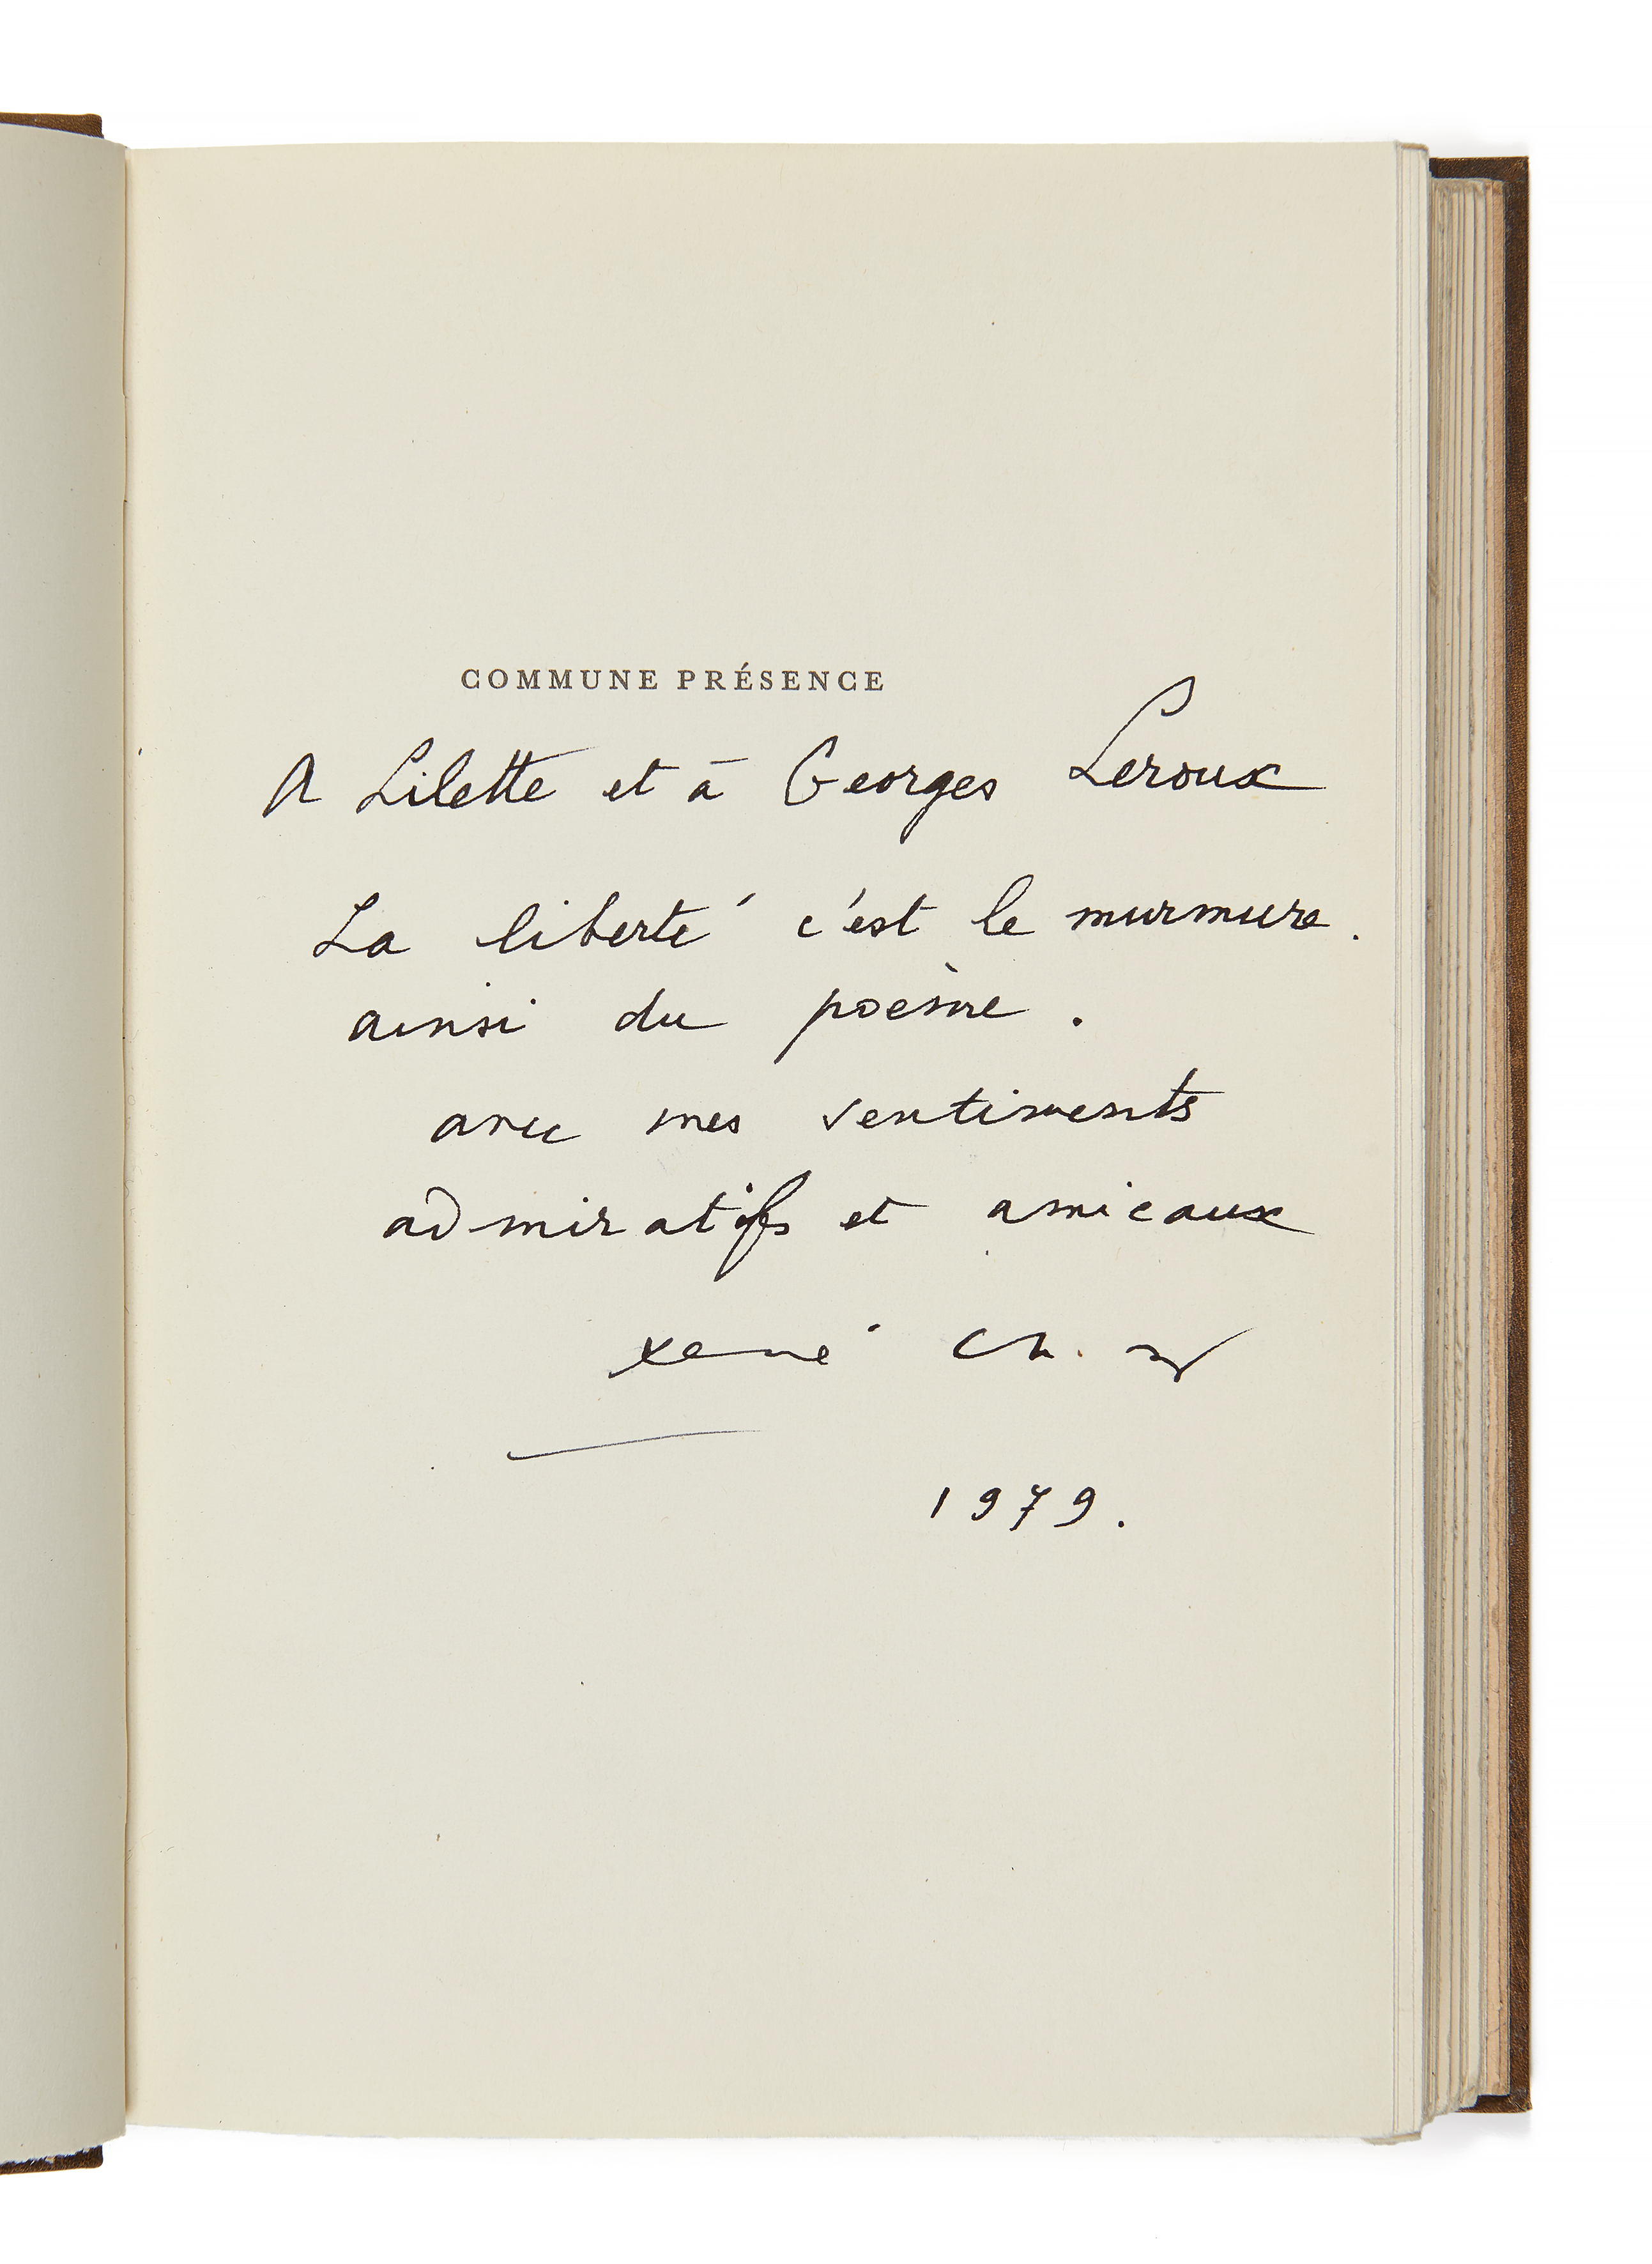 COMMUNE PRÉSENCE
A Lilette et à Georges Leroux
La liberté c'est le murmure.
ainsi du poème.
avec mes sentiments
admiratifs et amicaux
René Char
1979.